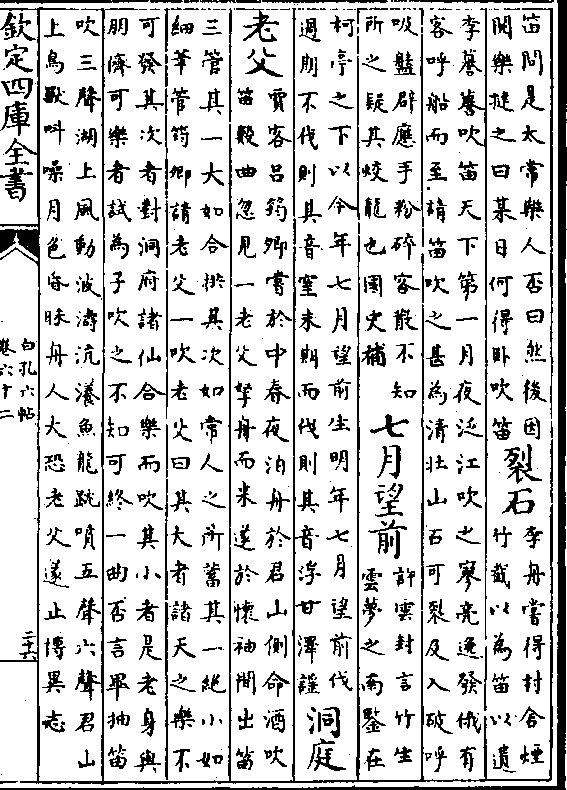 笛問是太常樂人否曰然後因
閱樂撻之曰某日何得卧吹笛
裂石
李舟嘗得村舍煙
竹截以為笛以遺
李謩謩吹笛天下第一月夜泛江吹之寥亮逸發俄有
客呼船而至請笛吹之甚為清壯山石可裂及入破呼
吸盤辟應手粉碎客散不知
所之疑其蛟龍也國史補
七月望前
許雲封言竹生
雲夢之南鑒在
柯亭之下以今年七月望前生明年七月望前伐
過期不伐則其音窒未期而伐則其音浮甘澤謡
洞庭
老父
賈客吕筠卿嘗於中春夜泊舟於君山側命酒吹
笛數曲忽見一老父拏舟而来遂於懷袖間出笛
三管其一大如合拱其次如常人之所蓄其一絶小如
細筆管筠卿請老父一吹老父曰其大者諸天之樂不
可發其次者對洞府諸仙合樂而吹其小者是老身與
朋儕可樂者試為子吹之不知可終一曲否言畢抽笛
吹三聲湖上風動波濤沆瀁魚龍跳噴五聲六聲君山
上鳥獸叫噪月色昏昧舟人大恐老父遂止博異志
欽定四庫全書
白孔六帖
卷六十二
二十六